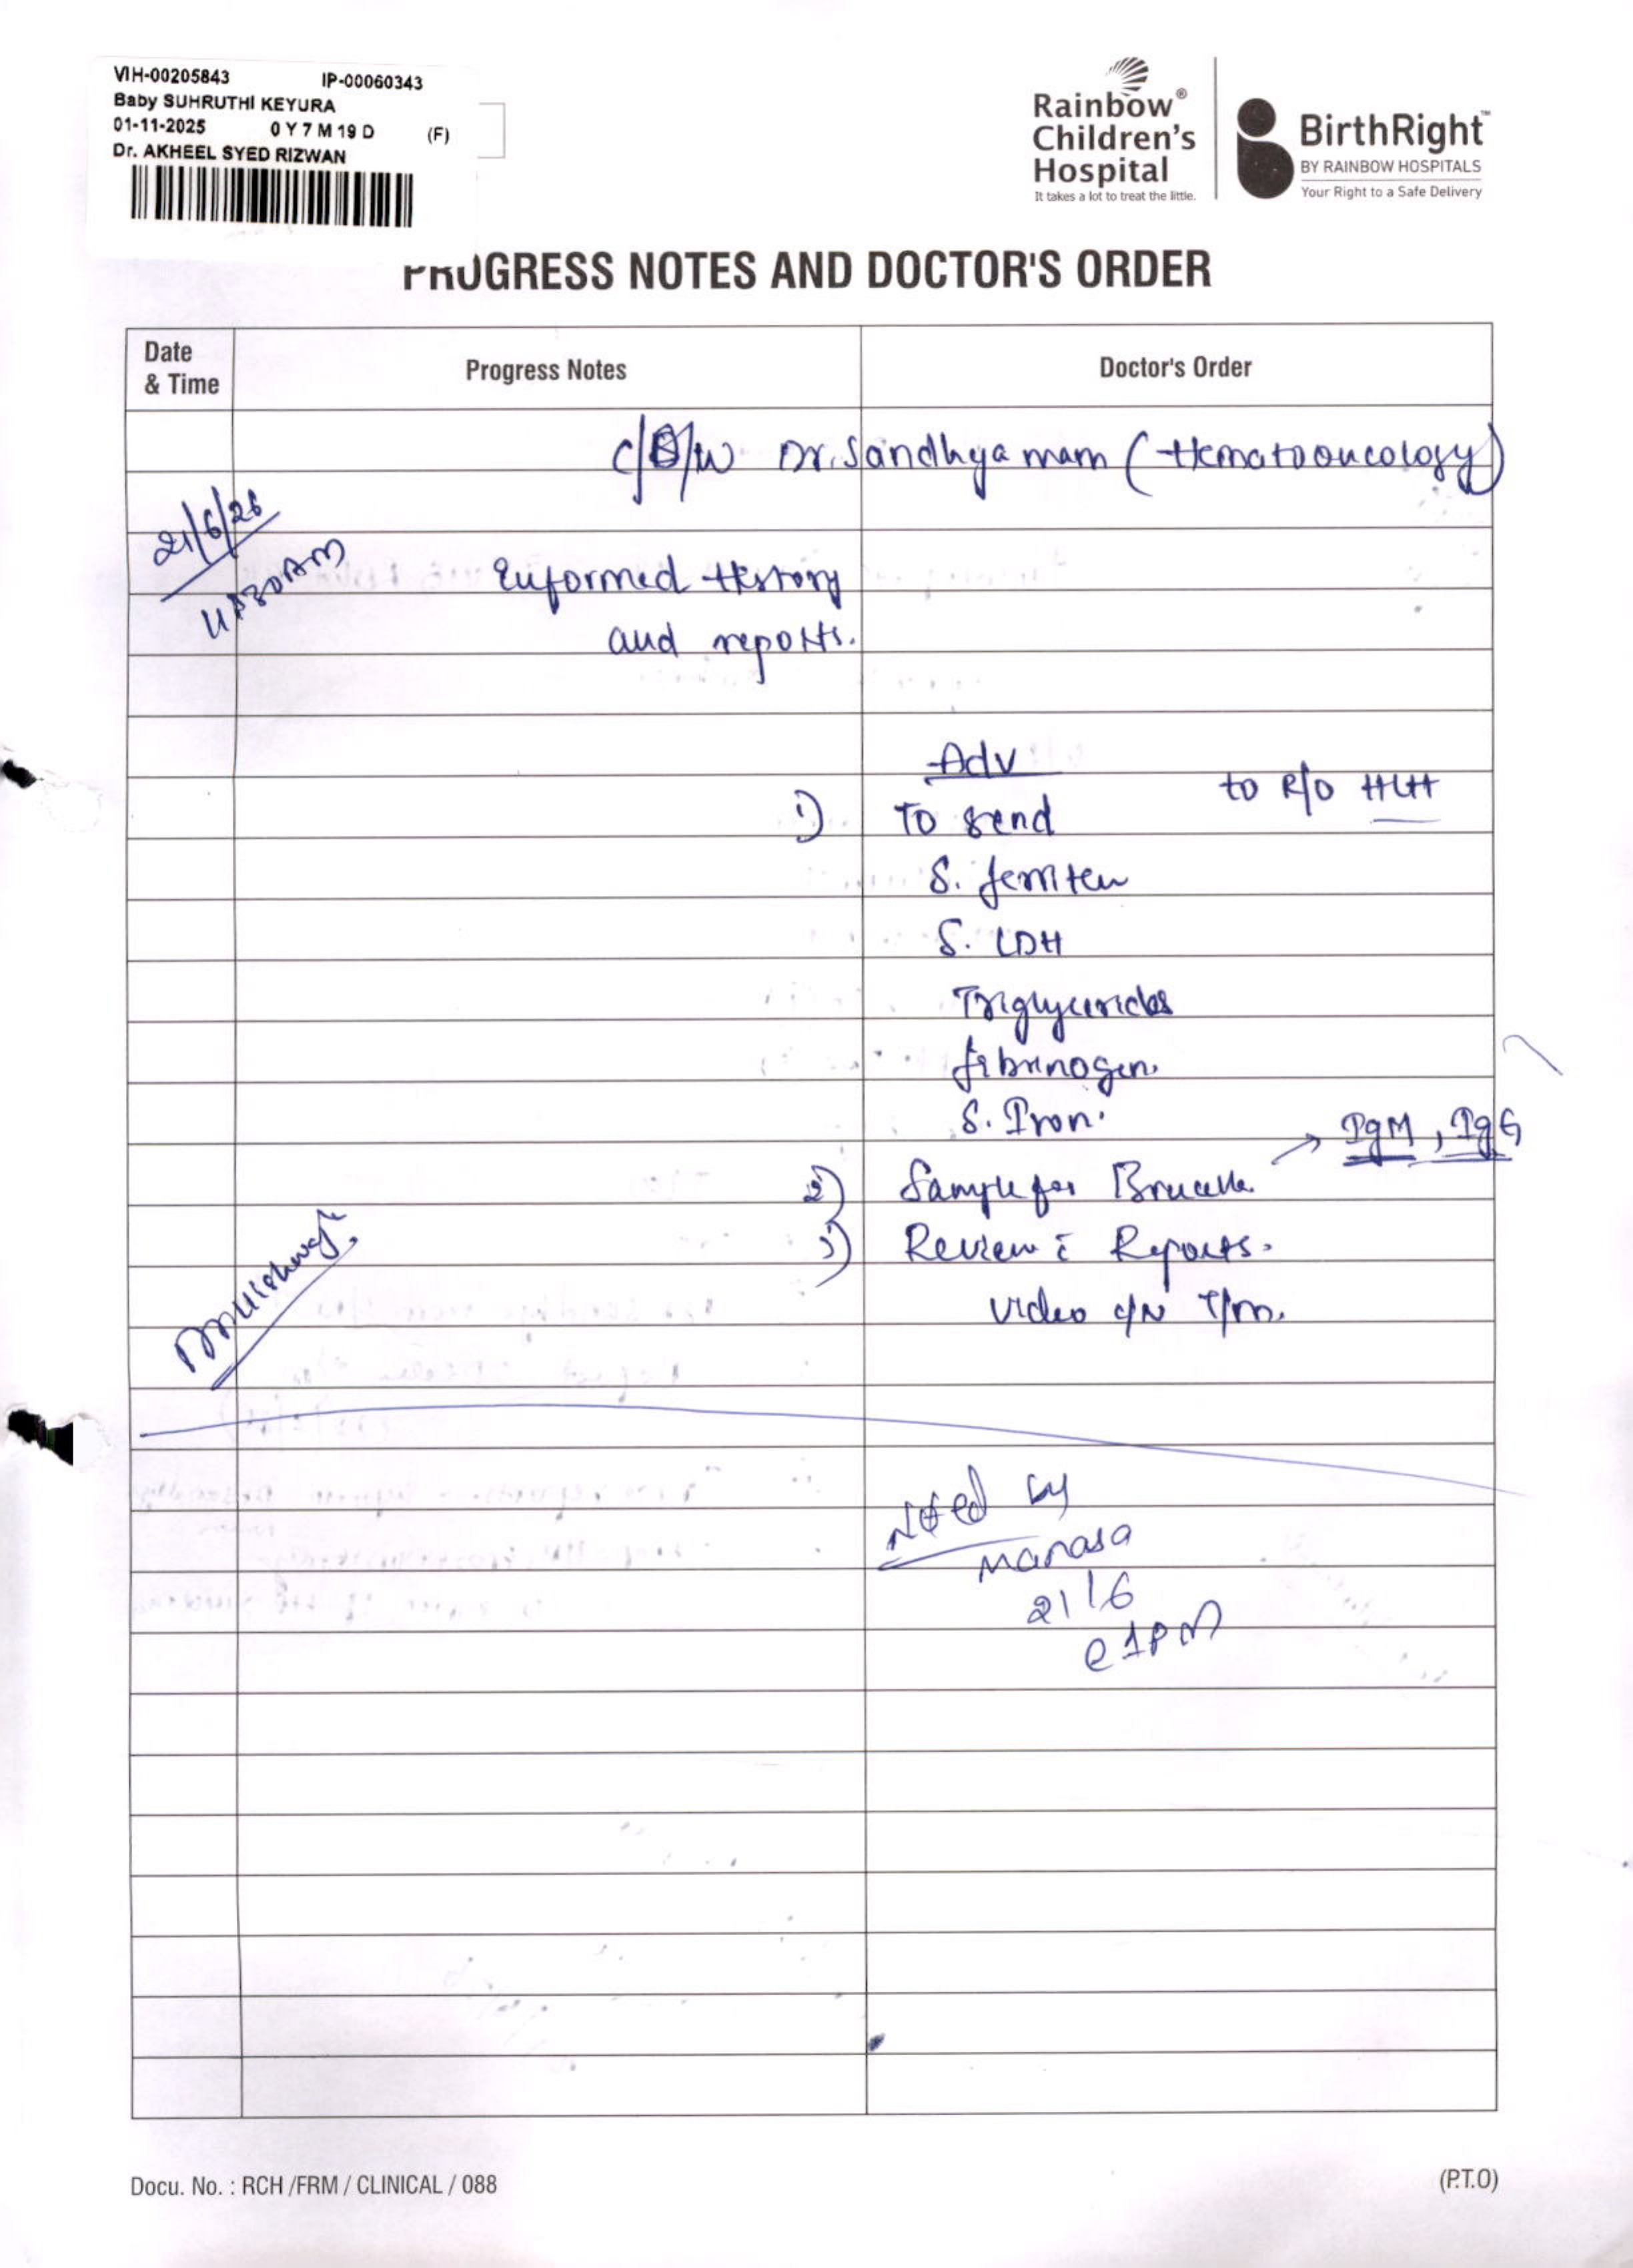 VIH-00205843 IP-00060343
Baby SUHRUTHI KEYURA
01-11-2025 0 Y 7 M 19 D (F)
Dr. AKHEEL SYED RIZWAN
Rainbow®
Children's
Hospital
It takes a lot to treat the little.
BirthRight™
BY RAINBOW HOSPITALS
Your Right to a Safe Delivery
PROGRESS NOTES AND DOCTOR'S ORDER
Date & Time Progress Notes Doctor's Order
c/D/w Dr. Sandhya mam (Hematooncology)
21/6/26
11:30AM
Informed History
and reports.
Adv
to R/O HLH
1) To send
S. ferriten
S. LDH
Triglycerides
fibrinogen.
S. Iron.
2) Sample for Brucella → IgM, IgG
3) Review c̄ Reports.
video c/w T/m.
Noted by
Manasa
21/6
@1PM
Docu. No. : RCH /FRM / CLINICAL / 088
(P.T.O)